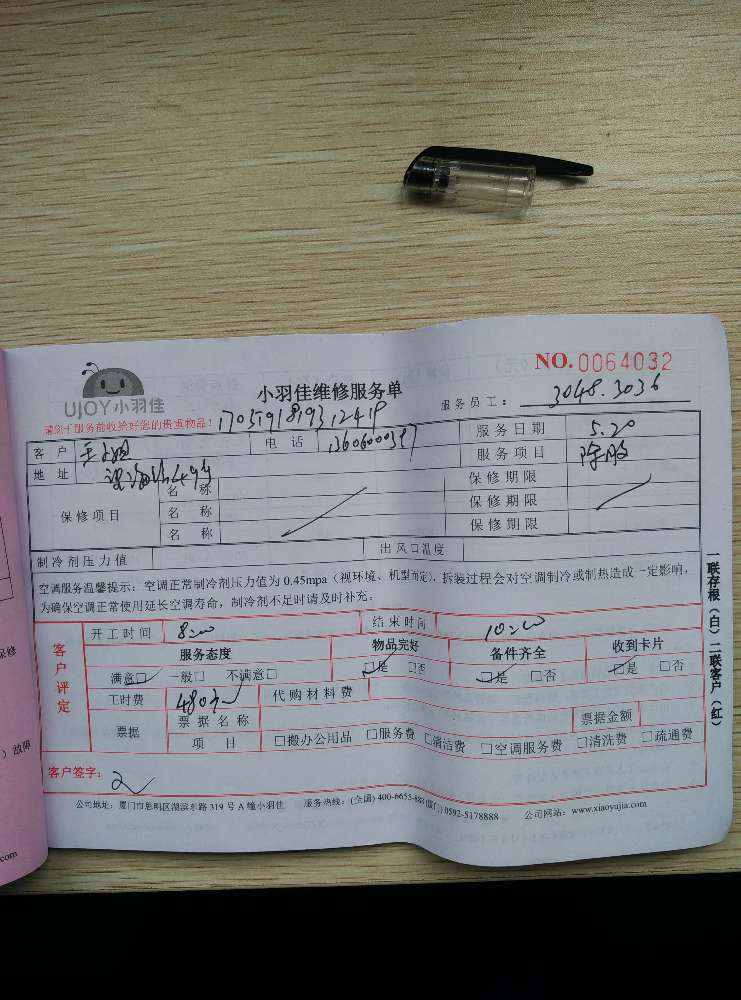 NO.0064032
UJOY小羽佳
小羽佳维修服务单
服务员工: 3048.3036
请您于服务前收给好您的贵重物品! 1705191819312418
客户 王小姐 电话 服务日期 5.20
地址 服务项目
保修项目 名称 保修期限
名称 保修期限
名称 保修期限
制冷剂压力值 出风口温度
空调服务温馨提示: 空调正常制冷剂压力值为0.45mpa (视环境、机型而定), 拆装过程会对空调制冷或制热造成一定影响,
为确保空调正常使用延长空调寿命, 制冷剂不足时请及时补充。
客户评定
开工时间 8:00 结束时间 10:00
服务态度 物品完好 备件齐全 收到卡片
满意□ 一般□ 不满意□ □是 □否 □是 □否 □是 □否
工时费 480元 代购材料费
票据 票据名称 票据金额
项目 □搬办公用品 □服务费 □清洁费 □空调服务费 □清洗费 □疏通费
客户签字:
公司地址: 厦门市思明区湖滨东路319号A幢小羽佳 服务热线: (全国) 400-6655-888 (厦门) 0592-5178888 公司网站: www.xiaoyujia.com
一联存根(白) 二联客户(红)
保修
) 故障
com